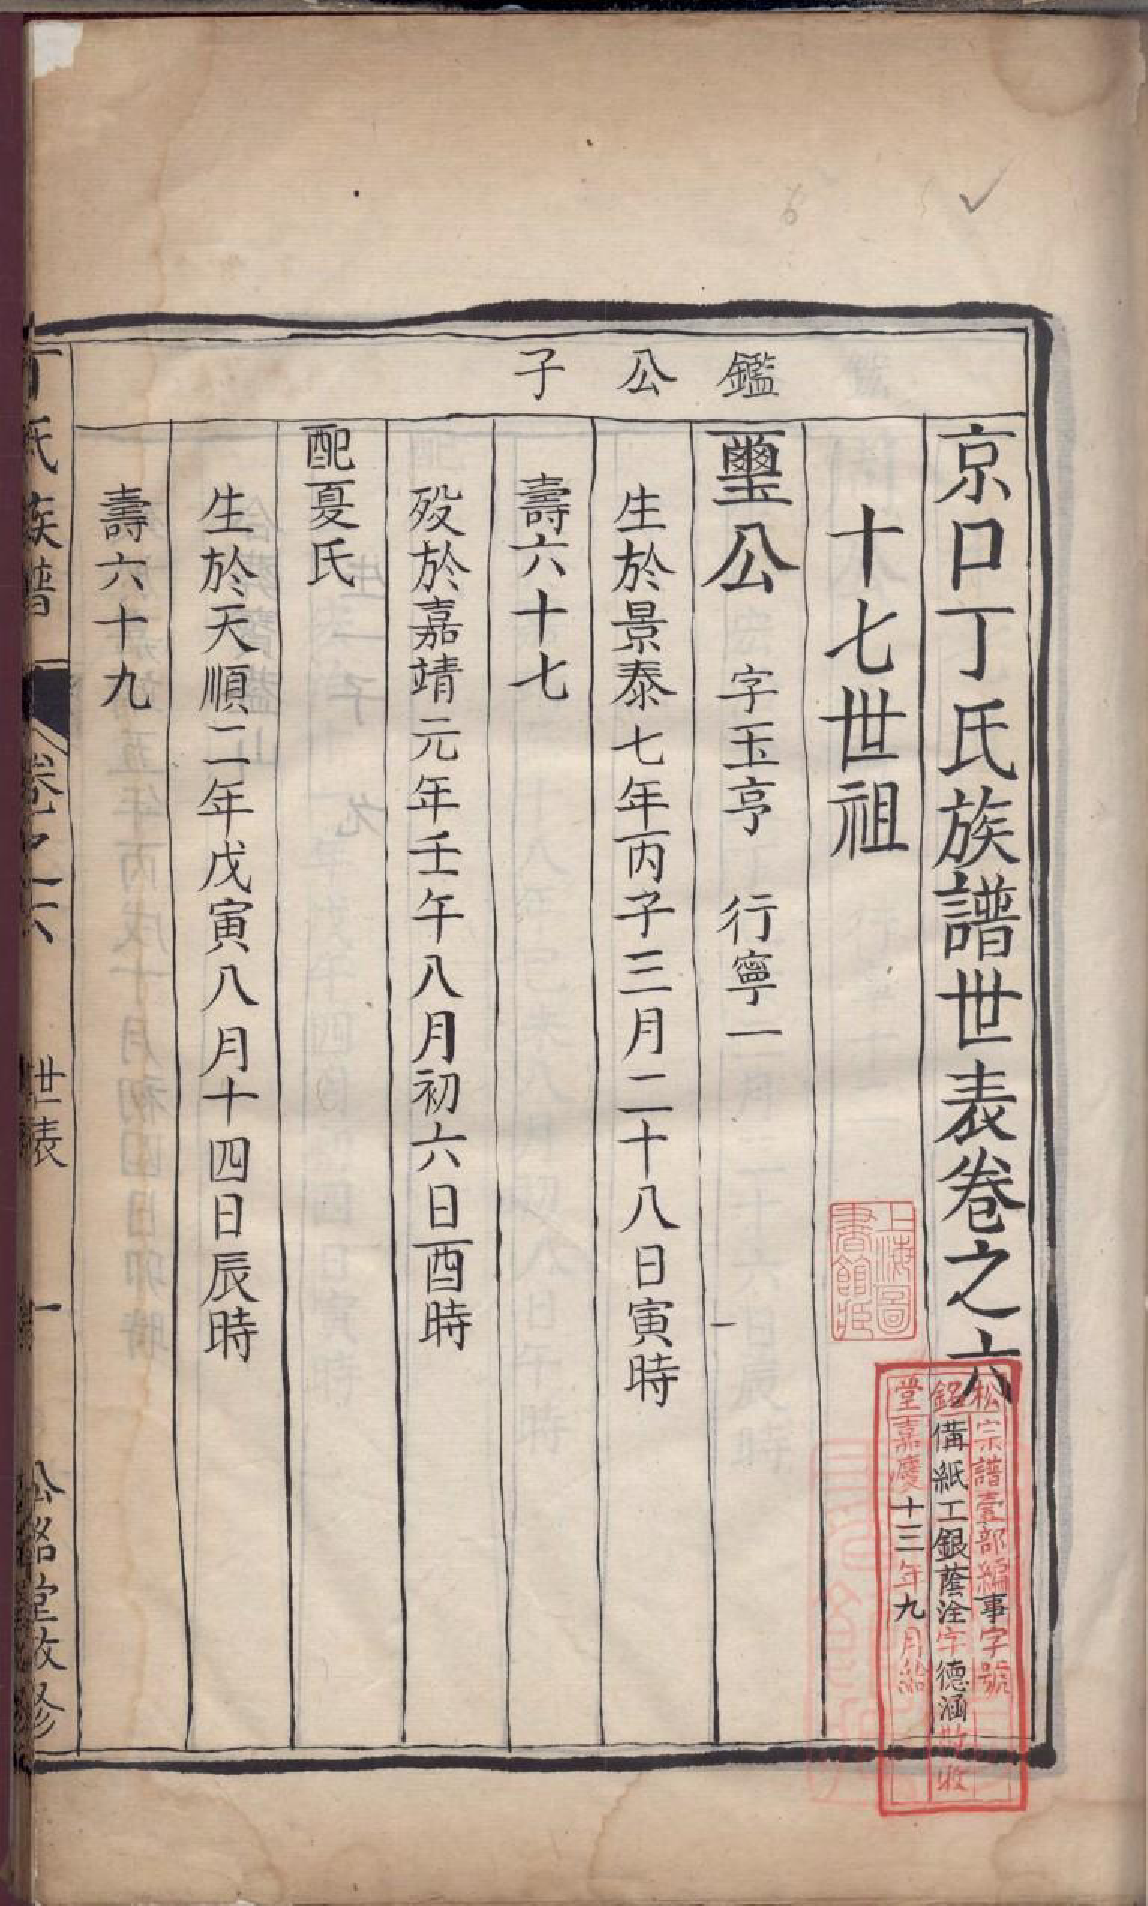 京口丁氏族譜世表卷之六
十七世祖
鑑公子
璽公 字玉亨 行寧一
生於景泰七年丙子三月二十八日寅時
壽六十七
歿於嘉靖元年壬午八月初六日酉時
配夏氏
生於天順二年戊寅八月十四日辰時
壽六十九
丁氏族譜 卷之六 世表 一 松銘堂敬修
上海圖書館藏
松宗譜壹部編事字號
銘備紙工銀蔭洤字德涵收
堂嘉慶十三年九月給